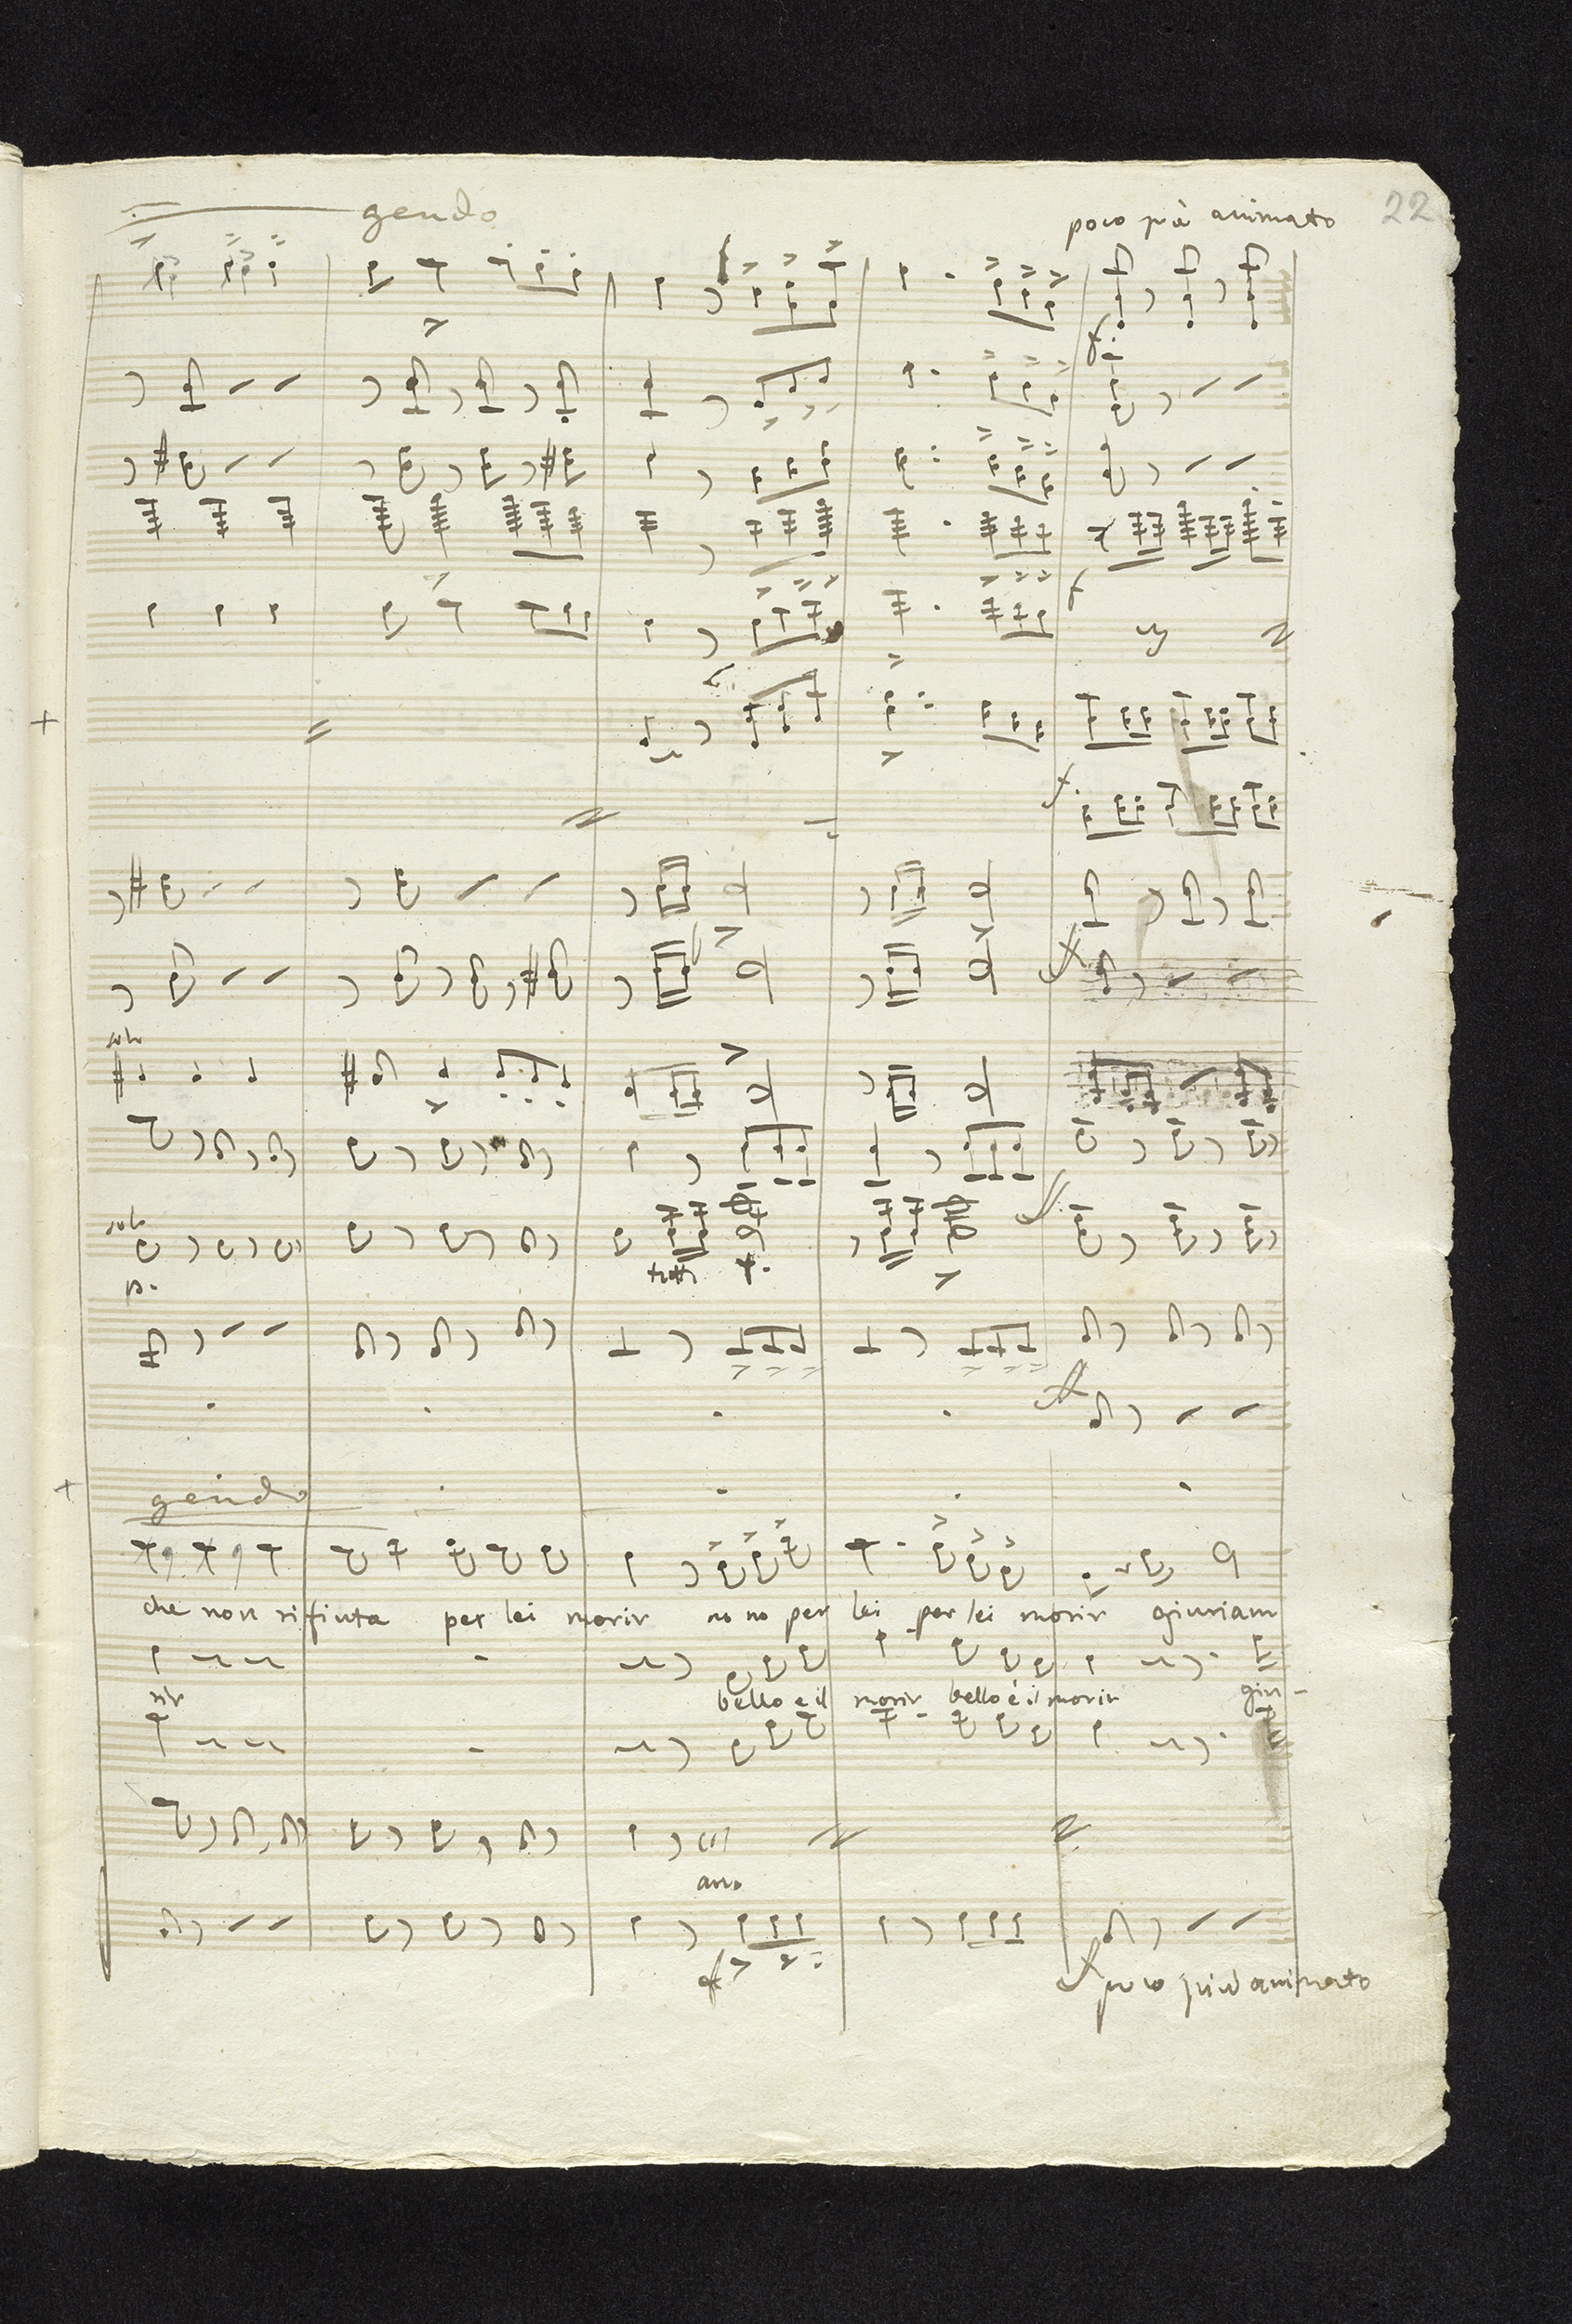 gendo
poco più animato
22
solo
solo
p.
tutti
gendo
che non rifiuta per lei morir no no per lei per lei morir giuriam
rir bello è il morir bello è il morir giu-
arco
poco più animato